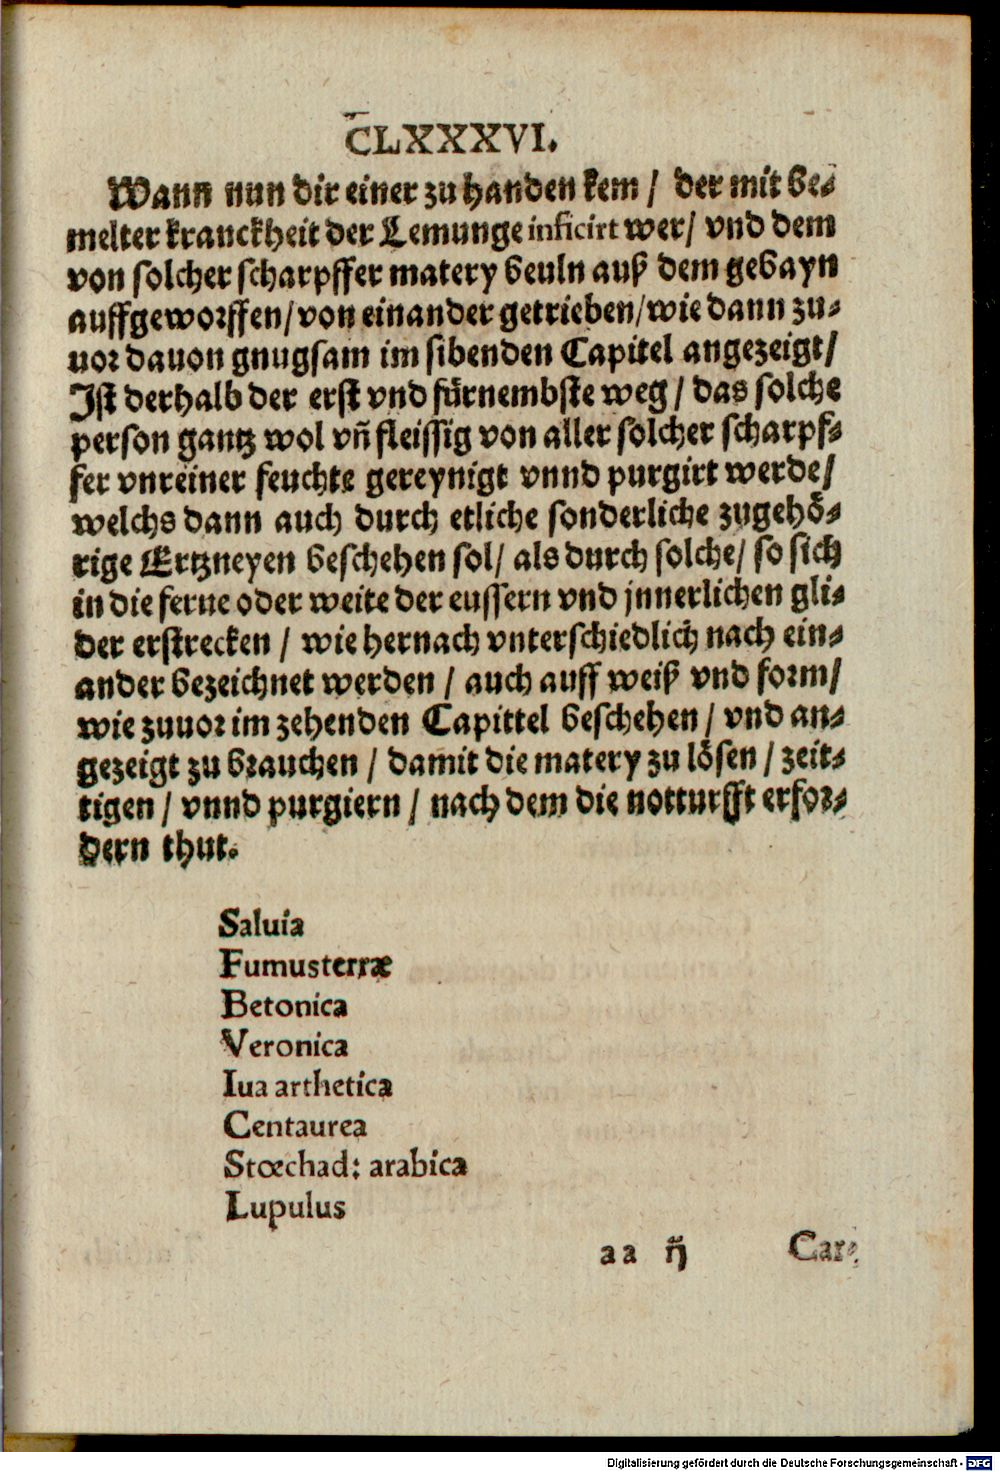 C̅LXXXVI.
Wann nun dir einer zu handen kem / der mit be⸗
melter kranckheit der Lemunge inficirt wer/ vnd dem
von solcher scharpffer matery beuln auß dem gebayn
auffgeworffen/von einander getrieben/wie dann zu⸗
uor dauon gnugsam im sibenden Capitel angezeigt/
Jst derhalb der erst vnd fürnembste weg / das solche
person gantz wol vñ fleissig von aller solcher scharpf⸗
fer vnreiner feuchte gereynigt vnnd purgirt werde/
welchs dann auch durch etliche sonderliche zugehö⸗
rige Ertzneyen beschehen sol/ als durch solche/ so sich
in die ferne oder weite der eussern vnd jnnerlichen gli⸗
der erstrecken / wie hernach vnterschiedlich nach ein⸗
ander bezeichnet werden / auch auff weiß vnd form/
wie zuuor im zehenden Capittel beschehen / vnd an⸗
gezeigt zu brauchen / damit die matery zu lösen / zeit⸗
tigen / vnnd purgiern / nach dem die notturfft erfor⸗
dern thut.
Saluia
Fumusterræ
Betonica
Veronica
Iua arthetica
Centaurea
Stœchad: arabica
Lupulus
aa ij Car⸗
Digitalisierung gefördert durch die Deutsche Forschungsgemeinschaft - DFG